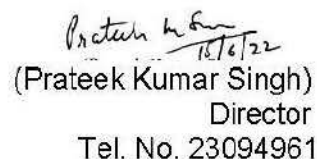 Prateek
15/6/22
(Prateek Kumar Singh)
Director
Tel. No. 23094961